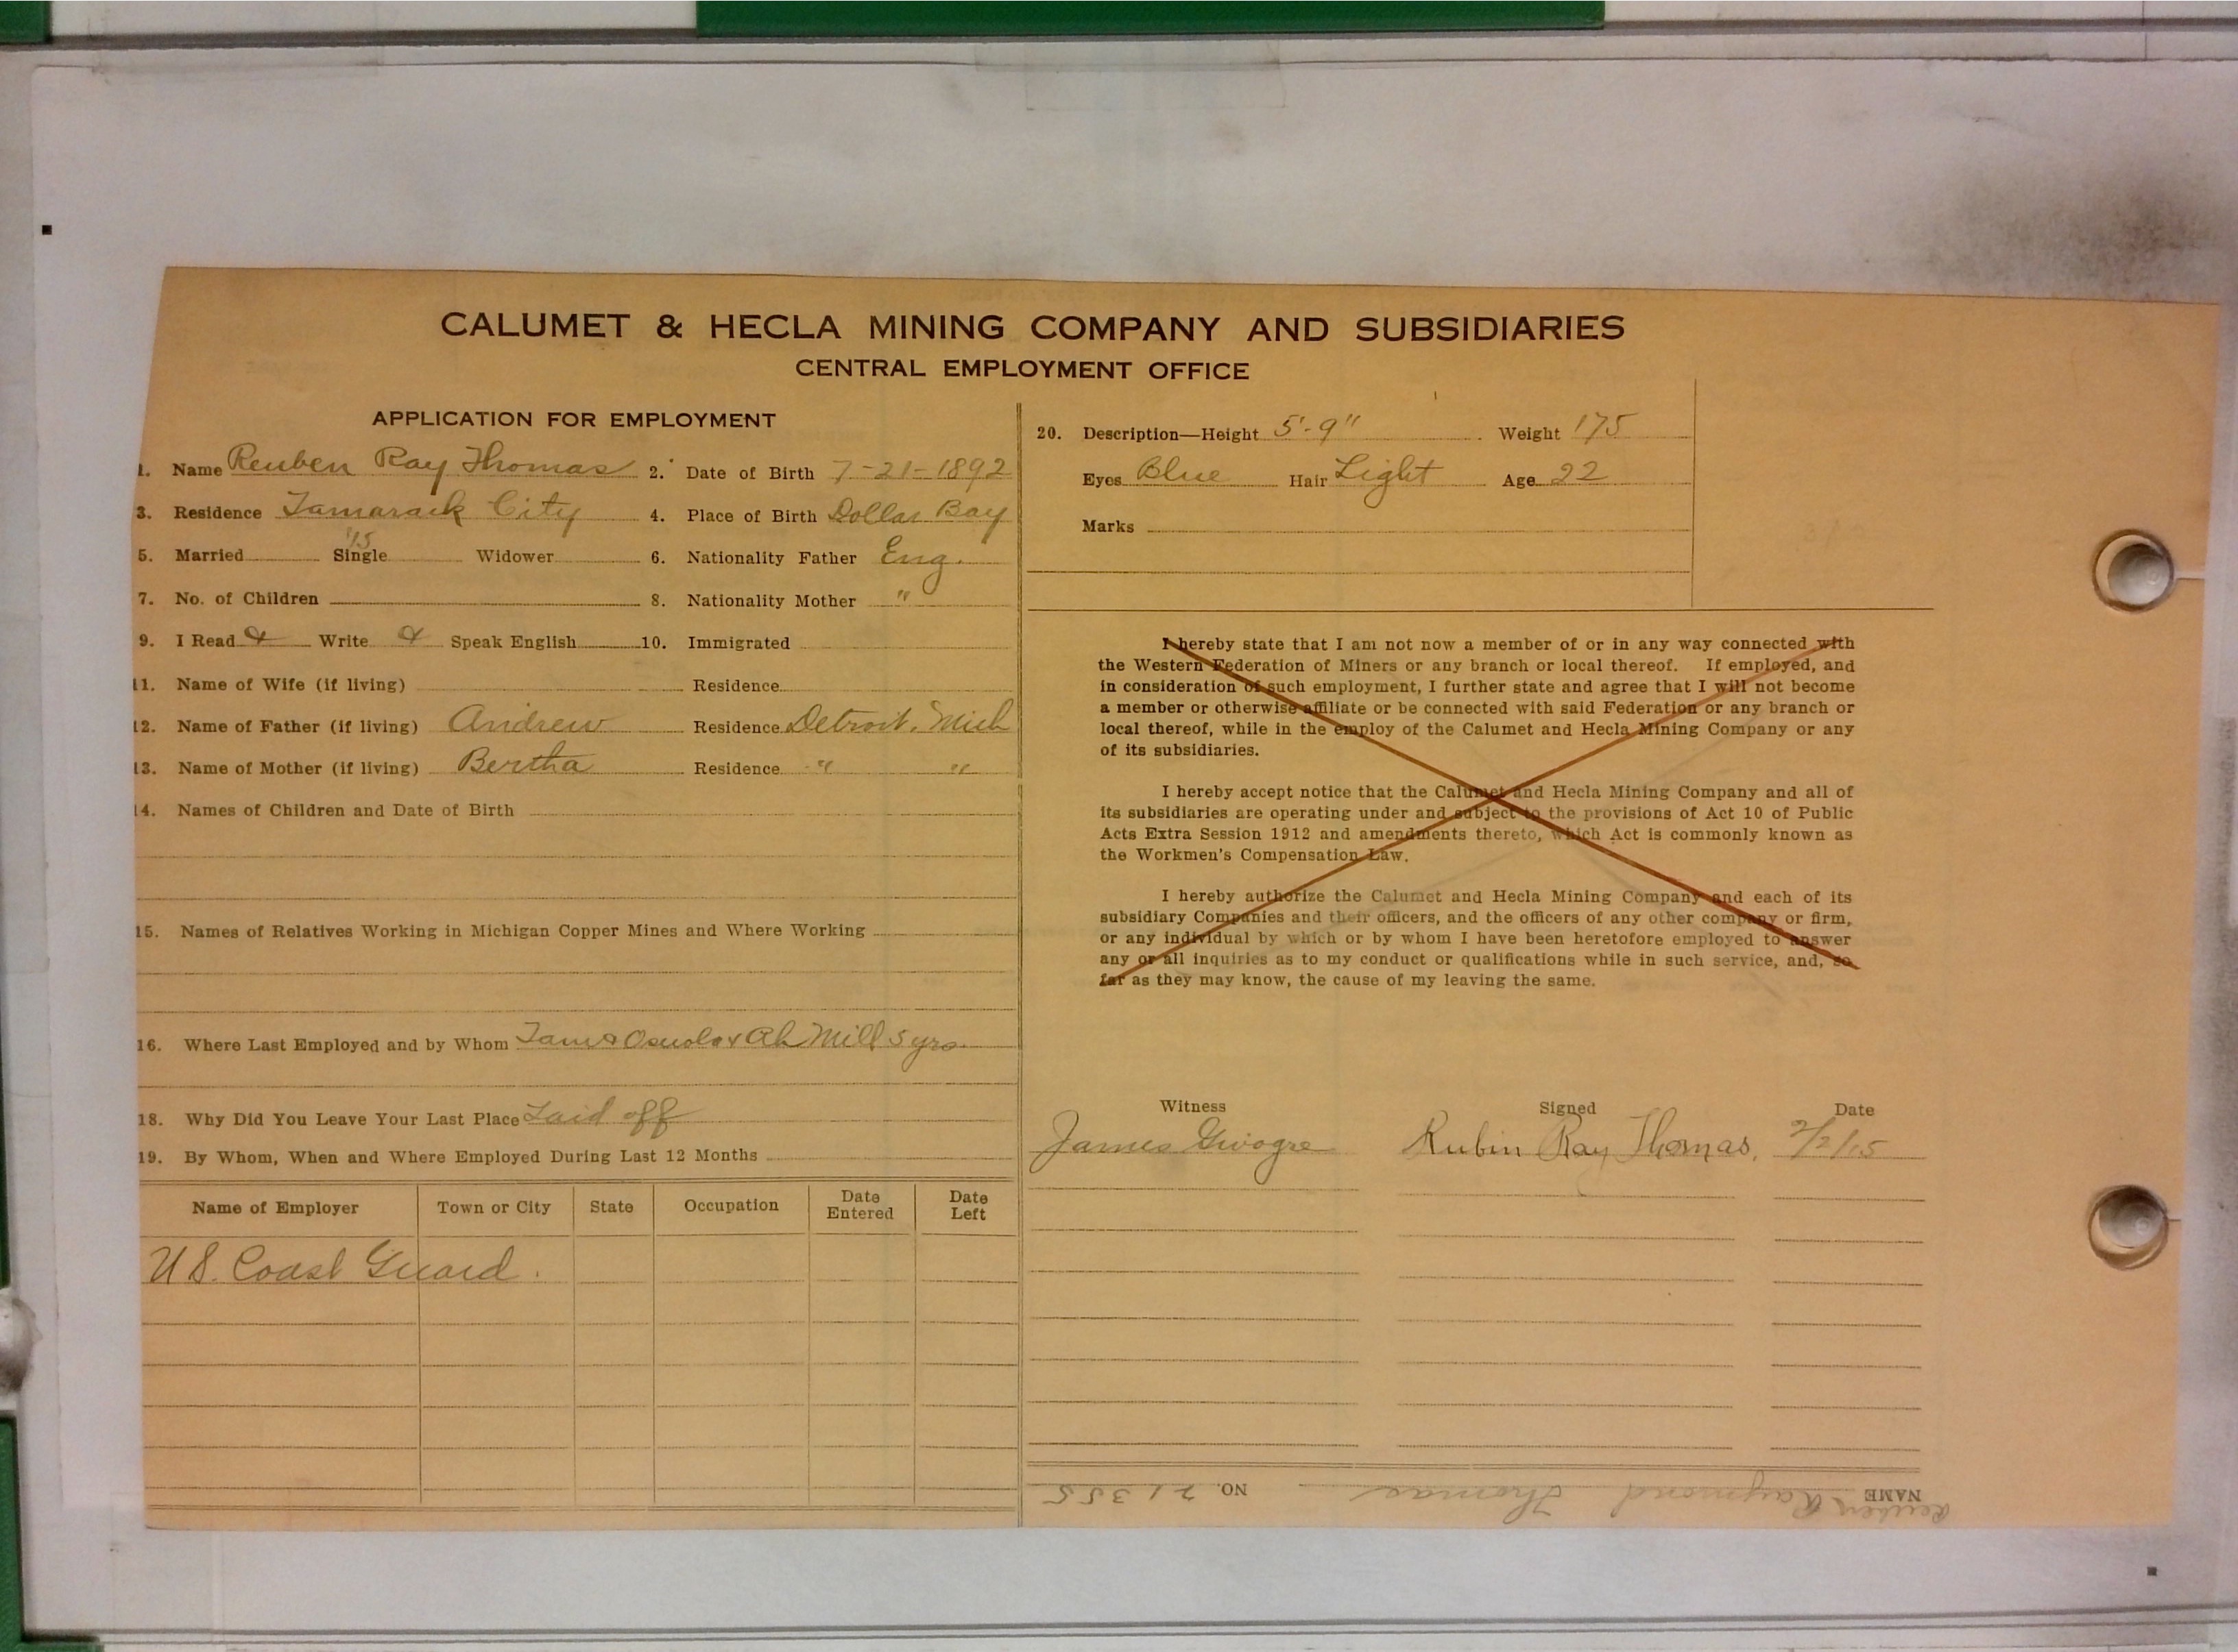 CALUMET & HECLA MINING COMPANY AND SUBSIDIARIES
CENTRAL EMPLOYMENT OFFICE
APPLICATION FOR EMPLOYMENT
1. Name Reuben Ray Thomas 2. Date of Birth 7-21-1892
3. Residence Tamarack City 4. Place of Birth Dollar Bay
'15
5. Married Single Widower 6. Nationality Father Eng.
7. No. of Children 8. Nationality Mother "
9. I Read & Write & Speak English 10. Immigrated
11. Name of Wife (if living) Residence
12. Name of Father (if living) Andrew Residence Detroit, Mich
13. Name of Mother (if living) Bertha Residence " "
14. Names of Children and Date of Birth
15. Names of Relatives Working in Michigan Copper Mines and Where Working
16. Where Last Employed and by Whom Mill 5 yrs.
18. Why Did You Leave Your Last Place Laid off
19. By Whom, When and Where Employed During Last 12 Months
Name of Employer Town or City State Occupation Date Entered Date Left
U.S. Coast Guard.
20. Description—Height 5'-9" Weight 175
Eyes Blue Hair Light Age 22
Marks
I hereby state that I am not now a member of or in any way connected with
the Western Federation of Miners or any branch or local thereof. If employed, and
in consideration of such employment, I further state and agree that I will not become
a member or otherwise affiliate or be connected with said Federation or any branch or
local thereof, while in the employ of the Calumet and Hecla Mining Company or any
of its subsidiaries.
I hereby accept notice that the Calumet and Hecla Mining Company and all of
its subsidiaries are operating under and subject to the provisions of Act 10 of Public
Acts Extra Session 1912 and amendments thereto, which Act is commonly known as
the Workmen's Compensation Law.
I hereby authorize the Calumet and Hecla Mining Company and each of its
subsidiary Companies and their officers, and the officers of any other company or firm,
or any individual by which or by whom I have been heretofore employed to answer
any or all inquiries as to my conduct or qualifications while in such service, and, so
far as they may know, the cause of my leaving the same.
Witness Signed Date
James Rubin Ray Thomas. 2/2/15
NAME Reuben Raymond Thomas NO. 21355